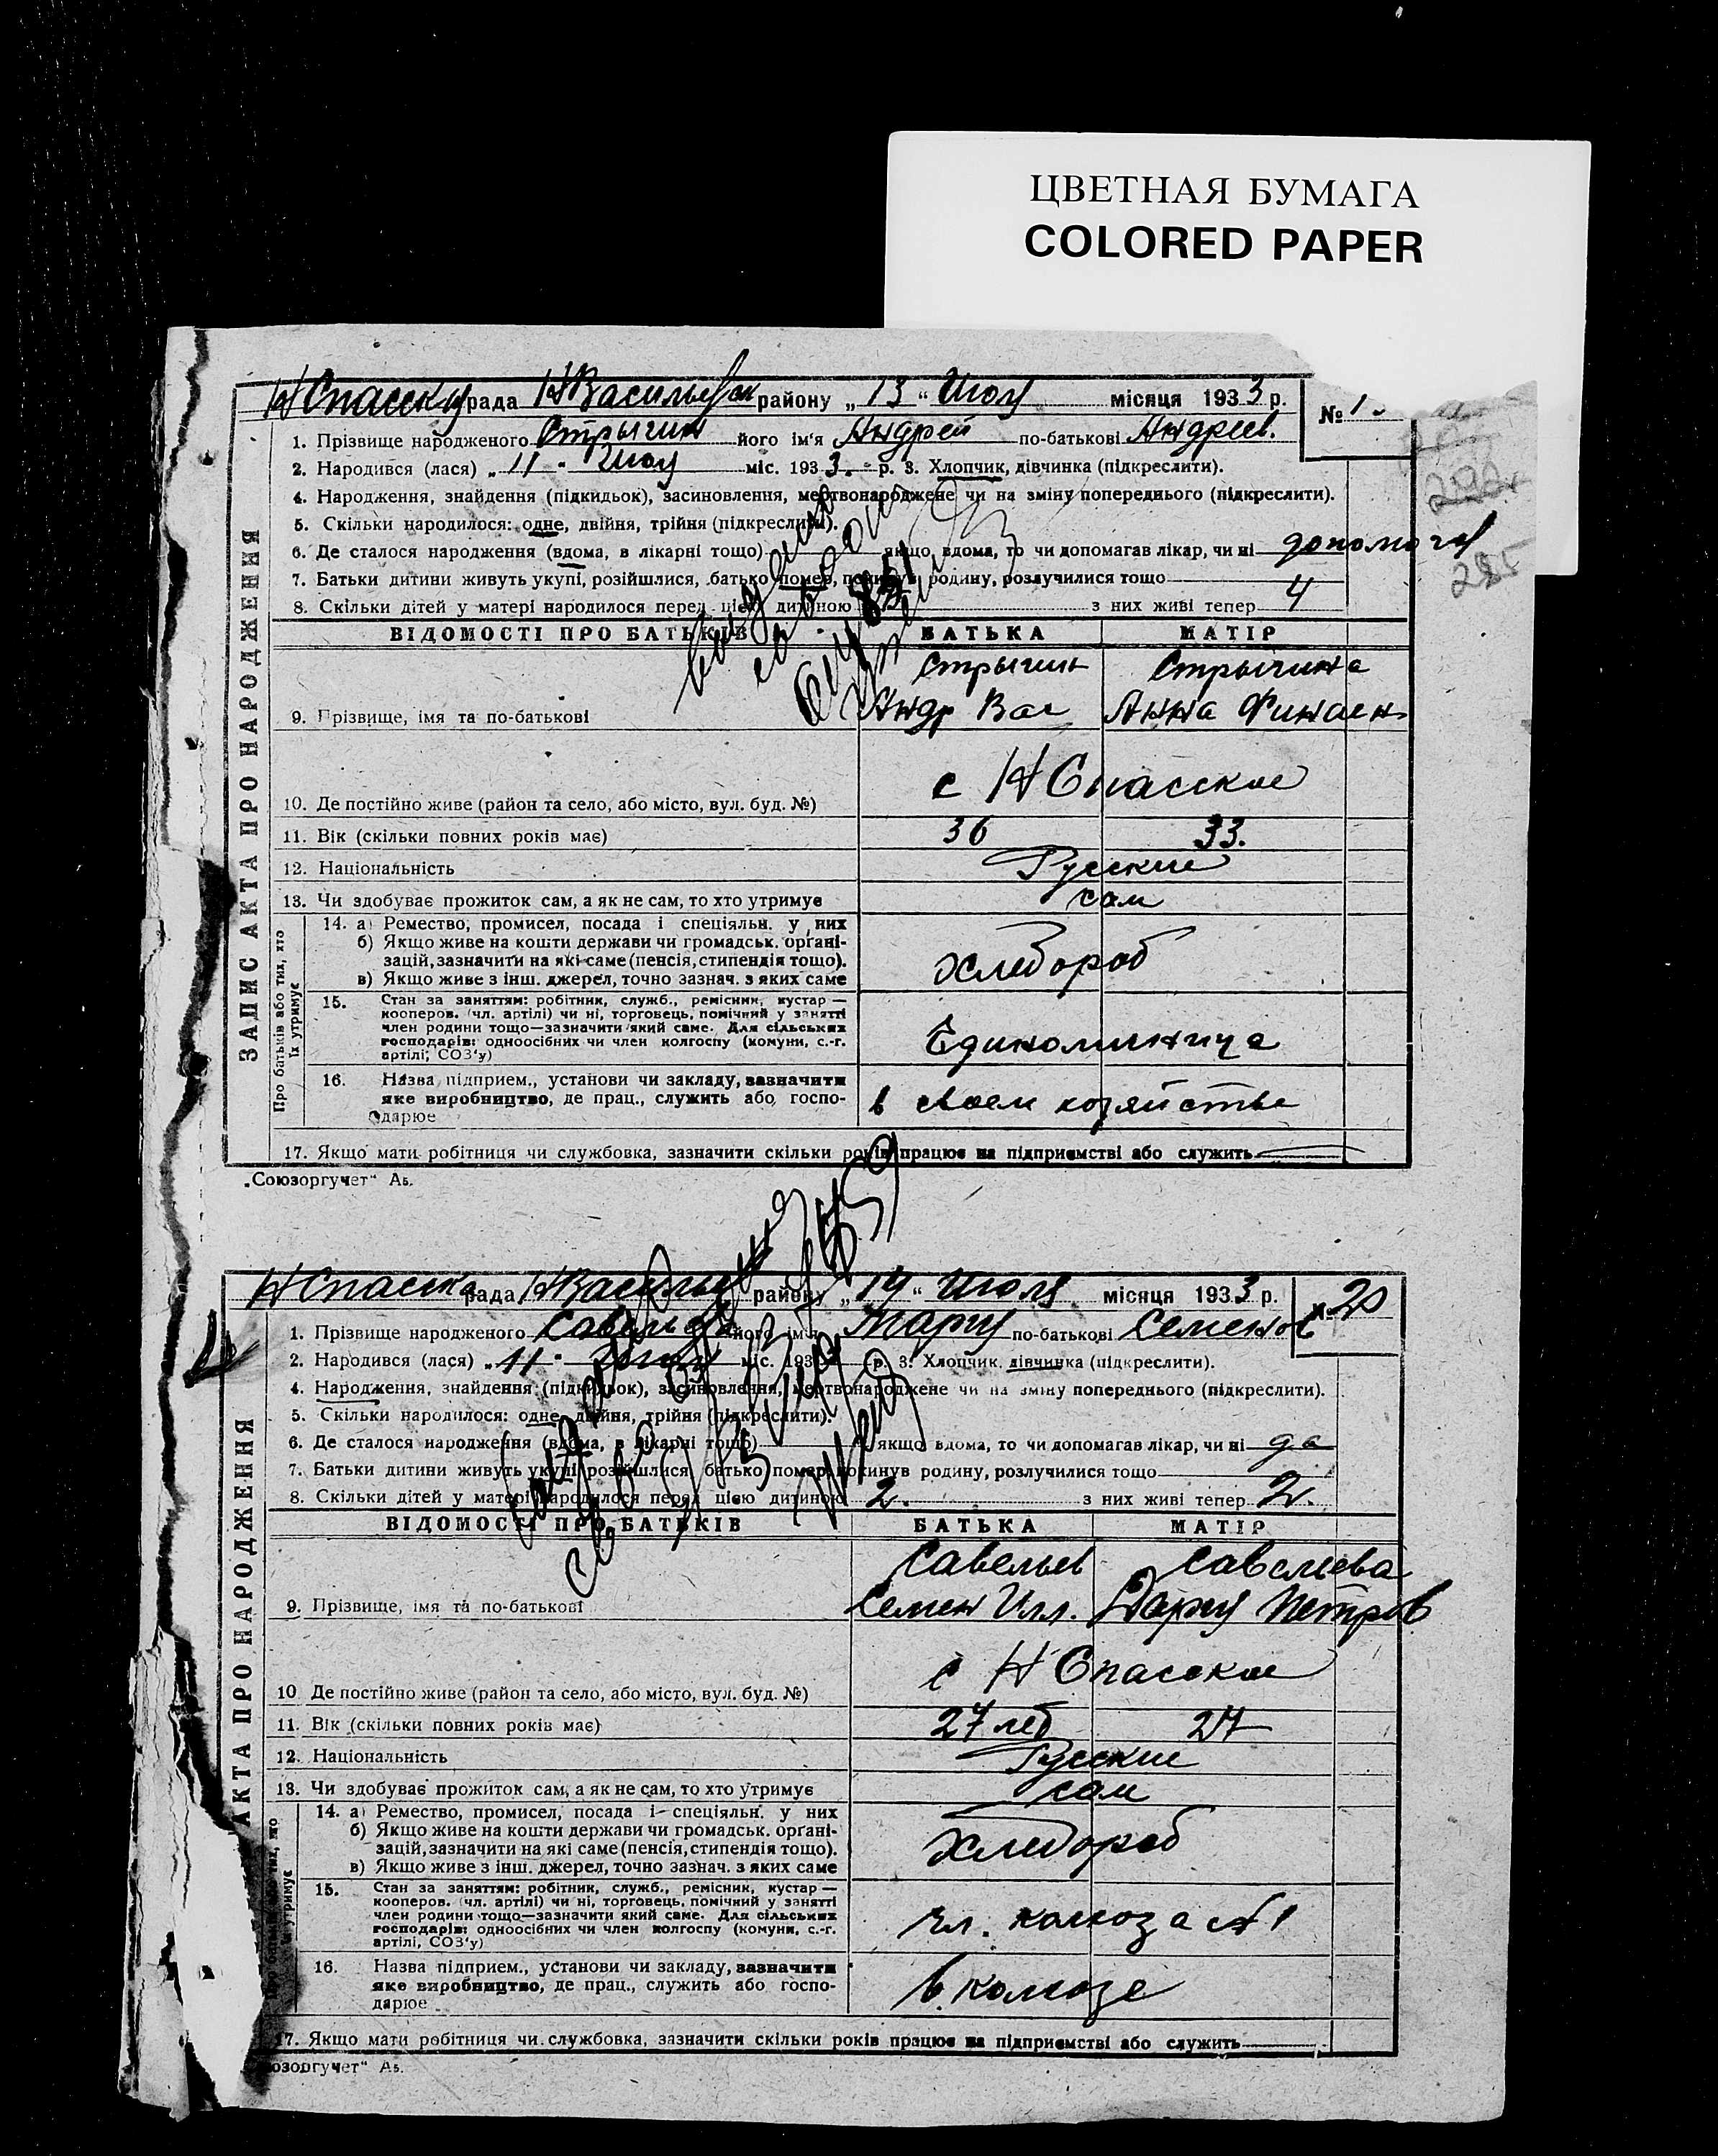 ЦВЕТНАЯ БУМАГА
COLORED PAPER
ЗАПИС АКТА ПРО НАРОДЖЕННЯ
Н Спасску рада Н Васильевск району „13“ Июля місяця 1933 р. №
1. Прізвище народженого Стрыгин його ім'я Андрей по-батькові Андреев.
2. Народився (лася) „11. Июля міс. 1933. р. 3. Хлопчик, дівчинка (підкреслити).
4. Народження, знайдення (підкидьок), засиновлення, мертвонароджене чи на зміну попереднього (підкреслити).
5. Скільки народилося: одне, двійня, трійня (підкреслити).
6. Де сталося народження (вдома, в лікарні тощо) якщо вдома, то чи допомагав лікар, чи ні
7. Батьки дитини живуть укупі, розійшлися, батько помер, покинув родину, розлучилися тощо
8. Скільки дітей у матері народилося перед цією дитиною з них живі тепер 4
ВІДОМОСТІ ПРО БАТЬКІВ БАТЬКА МАТІР
Стрыгин Стрыгина
9. Прізвище, імя та по-батькові Андр Вас Анна
10. Де постійно живе (район та село, або місто, вул. буд. №) с Н Спасское
11. Вік (скільки повних років має) 36 33.
12. Національність Русские
13. Чи здобуває прожиток сам, а як не сам, то хто утримує сам
Про батьків або тих, хто їх утримує
14. а) Ремество, промисел, посада і спеціяльн. у них
б) Якщо живе на кошти держави чи громадськ. органі-
зацій, зазначити на які саме (пенсія, стипендія тощо).
в) Якщо живе з інш. джерел, точно зазнач. з яких саме
Хлебороб
15. Стан за заняттям: робітник, служб., ремісник, кустар —
кооперов. (чл. артілі) чи ні, торговець, помічний у занятті
член родини тощо—зазначити який саме. Для сільських
господарів: одноосібних чи член колгоспу (комуни, с.-г.
артілі, СОЗ'у)
Единоличица
16. Назва підприєм., установи чи закладу, зазначити
яке виробництво, де прац., служить або госпо-
дарює
в своем хозяйстве
17. Якщо мати робітниця чи службовка, зазначити скільки років працює на підприємстві або служить
„Союзоргучет“ Аб.
АКТА ПРО НАРОДЖЕННЯ
Н Спасска рада Н Васильев району „14“ Июля місяця 1933 р. № 20
1. Прізвище народженого його ім'я Мария по-батькові Семенов
2. Народився (лася) „11. Июля міс. 193 р. 3. Хлопчик, дівчинка (підкреслити).
4. Народження, знайдення (підкидьок), засиновлення, мертвонароджене чи на зміну попереднього (підкреслити).
5. Скільки народилося: одне, двійня, трійня (підкреслити).
6. Де сталося народження (вдома, в лікарні тощо) якщо вдома, то чи допомагав лікар, чи ні да
7. Батьки дитини живуть укупі, розійшлися, батько помер, покинув родину, розлучилися тощо
8. Скільки дітей у матері народилося перед цією дитиною 2. з них живі тепер 2.
ВІДОМОСТІ ПРО БАТЬКІВ БАТЬКА МАТІР
Савельев Савелиева
9. Прізвище, імя та по-батькові Семен Илл. Дария Петров
10 Де постійно живе (район та село, або місто, вул. буд. №) с Н Спасское
11. Вік (скільки повних років має) 27 лет 27
12. Національність Русские
13. Чи здобуває прожиток сам, а як не сам, то хто утримує сам
14. а) Ремество, промисел, посада і спеціяльн. у них
б) Якщо живе на кошти держави чи громадськ. органі-
зацій, зазначити на які саме (пенсія, стипендія тощо).
в) Якщо живе з інш. джерел, точно зазнач. з яких саме
Хлебороб
15. Стан за заняттям: робітник, служб., ремісник, кустар —
кооперов. (чл. артілі) чи ні, торговець, помічний у занятті
член родини тощо—зазначити який саме. Для сільських
господарів: одноосібних чи член колгоспу (комуни, с.-г.
артілі, СОЗ'у)
чл. колхоза № 1
16. Назва підприєм., установи чи закладу, зазначити
яке виробництво, де прац., служить або госпо-
дарює
в. колхозе
17. Якщо мати робітниця чи службовка, зазначити скільки років працює на підприємстві або служить
озоргучет“ Аб.